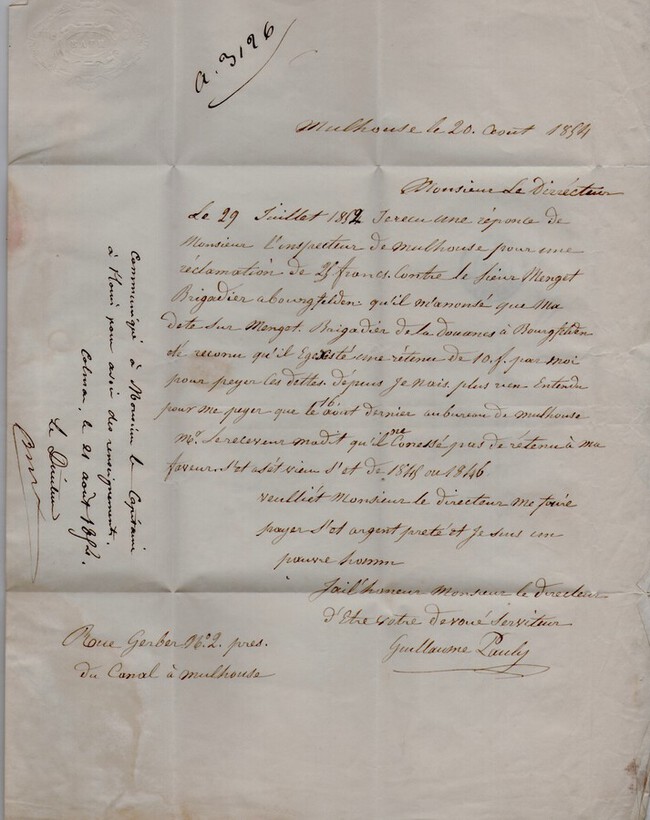 a. 3126
Mulhouse le 20. aout 1854
Monsieur Le Dirrécteur
Le 29 Juillet 1852 Jerecu une réponce de
Monsieur l'inspecteur de mulhouse pour une
réclamation de 25 francs. Contre le sieur Mengot
Brigadier abourgfelden. qu'il m'anonté que Ma
dete sur Mengot. Brigadier de la douanes à Bourgfelden
reconu qu'il une rétenu de 10. f. par moi
pour peyer les dettes. dépuis Je nais plus rien Entendu
pour me peyer que le 16 aout dernier au bureau de mulhouse
Mr. Le receveur madit qu'il ne Conessé pas de rétenu à Ma
faveur. s'et asét vieu s'et de 1845 ou 1846
veulliét Monsieur le directeur me faire
payer s'et argent preté et Je suis un
pauvre homm
Jail'honeur Monsieur le directeur
d'Etre votre devoué serviteur
Guillaume Pauly
Rue Gerber No. 2. pres.
du Canal à mulhouse
Communiqué à Monsieur le Capitaine
à pour avoir des renseignements.
Colmar, le 21 août 1854.
Le Directeur